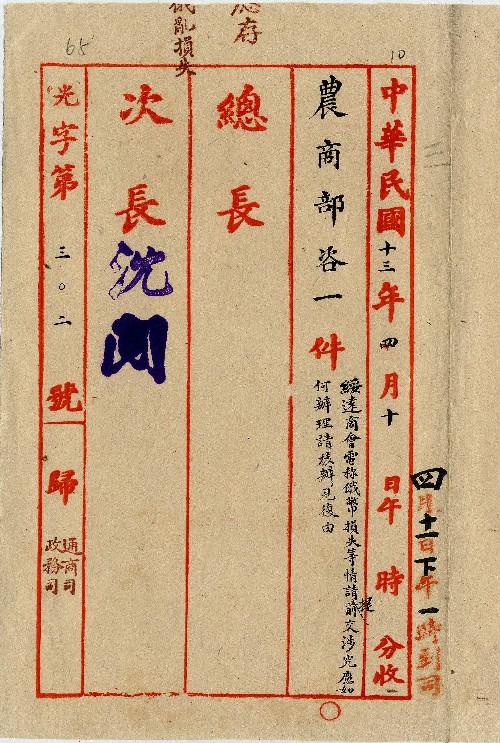 10
65
應存
俄亂損失
四月十一日下午一時到司
中華民國十三年四月十日午時分收
農商部咨一件
綏遠商會電稱俄幣損失等情請提前交涉究應如
何辦理請核辦見復由
總長
次長
沈
閱
光字第三〇二號歸
通商司
政務司